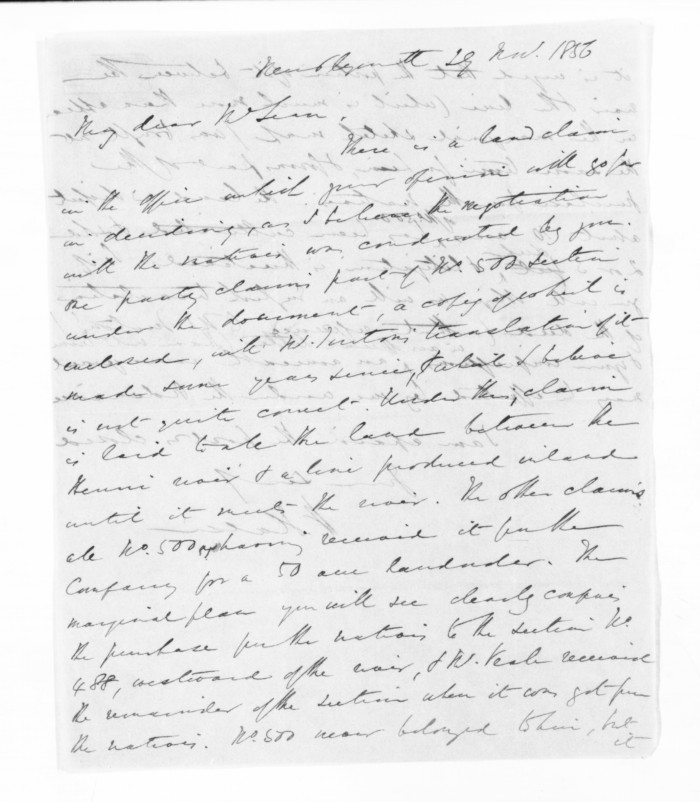 New Plymouth 29 Nov. 1856
My dear McLean,
There is a land claim
in the office which your opinion will go far
in deciding, as I believe the negotiation
with the natives was conducted by you.
One party claims part of No. 500 section
under the document, a copy of which is
enclosed, with Mr. Turton's translation of it
made some years since, & which I believe
is not quite correct. Under this, claim
is laid to all the land between the
Henui river & a line produced inland
until it meets the river. The other claims
all No. 500, having received it from the
Company for a 50 acre landorder. The
marginal plan you will see clearly confines
the purchase from the natives to the section No.
488, westward of the river, & Mr. Veale received
the remainder of the section when it was got from
the natives. No. 500 never belonged to him, but
it